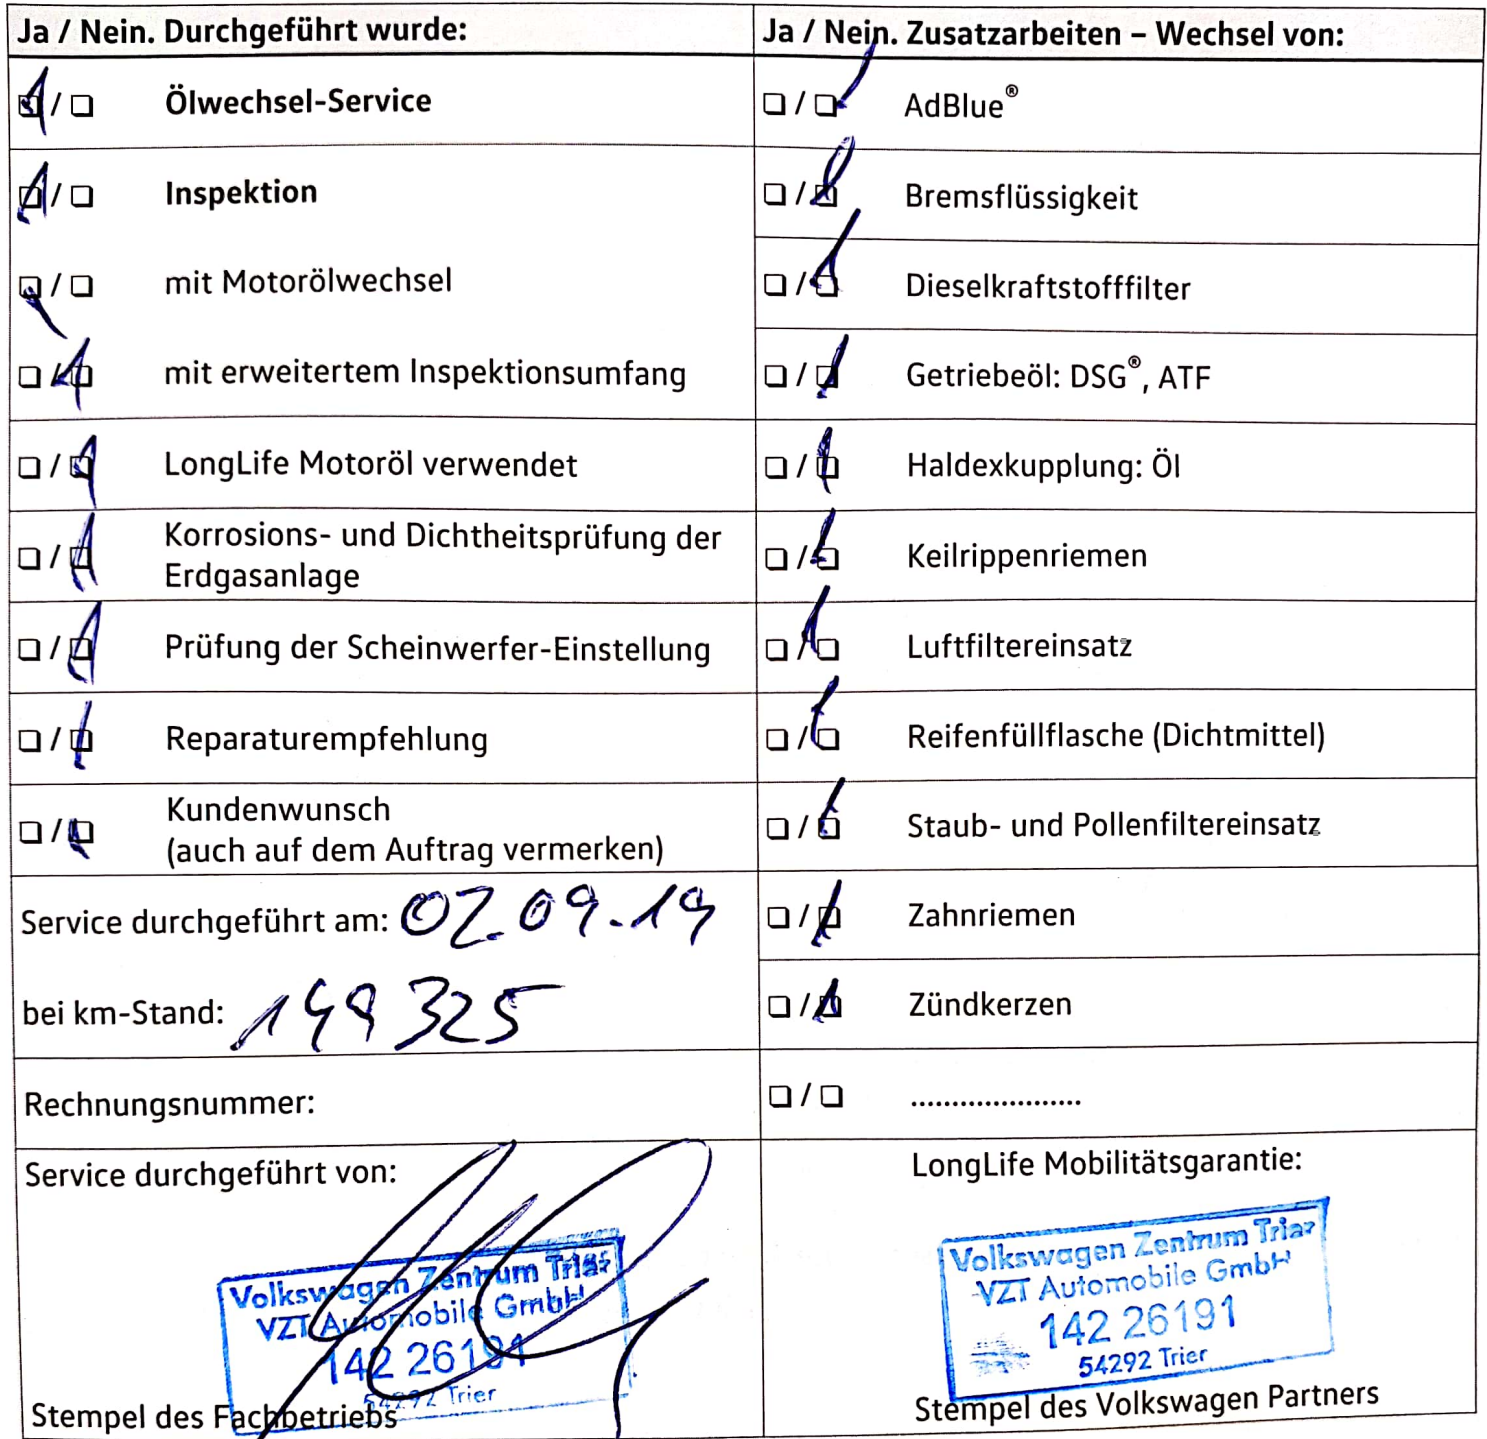 Ja / Nein. Durchgeführt wurde:
Ölwechsel-Service
Inspektion
mit Motorölwechsel
mit erweitertem Inspektionsumfang
LongLife Motoröl verwendet
Korrosions- und Dichtheitsprüfung der
Erdgasanlage
Prüfung der Scheinwerfer-Einstellung
Reparaturempfehlung
Kundenwunsch
(auch auf dem Auftrag vermerken)
Service durchgeführt am: 02.09.19
bei km-Stand: 149325
Rechnungsnummer:
Service durchgeführt von:
Volkswagen Zentrum Trier
VZT Automobile GmbH
142 26191
54292 Trier
Stempel des Fachbetriebs
Ja / Nein. Zusatzarbeiten – Wechsel von:
AdBlue®
Bremsflüssigkeit
Dieselkraftstofffilter
Getriebeöl: DSG®, ATF
Haldexkupplung: Öl
Keilrippenriemen
Luftfiltereinsatz
Reifenfüllflasche (Dichtmittel)
Staub- und Pollenfiltereinsatz
Zahnriemen
Zündkerzen
.....................
LongLife Mobilitätsgarantie:
Volkswagen Zentrum Trier
VZT Automobile GmbH
142 26191
54292 Trier
Stempel des Volkswagen Partners